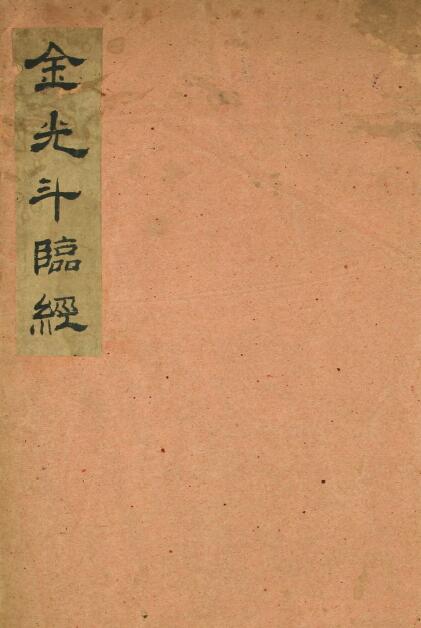 金光斗臨經